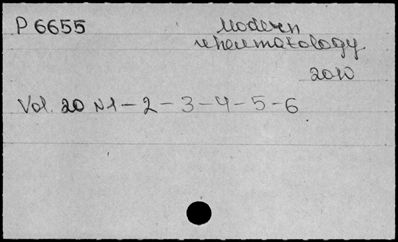 P 6655
Modern
rheumatology.
2010
Vol. 20 N1-2-3-4-5-6